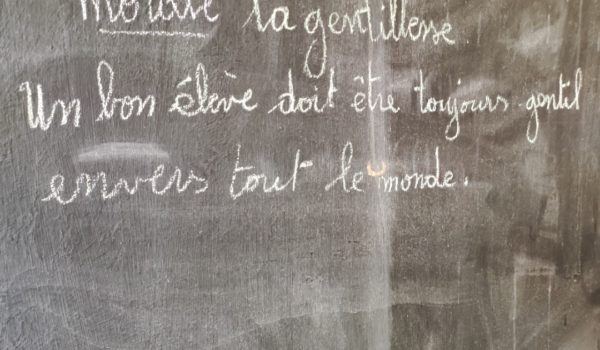 Morale la gentillesse
Un bon élève doit être toujours gentil
envers tout le monde.